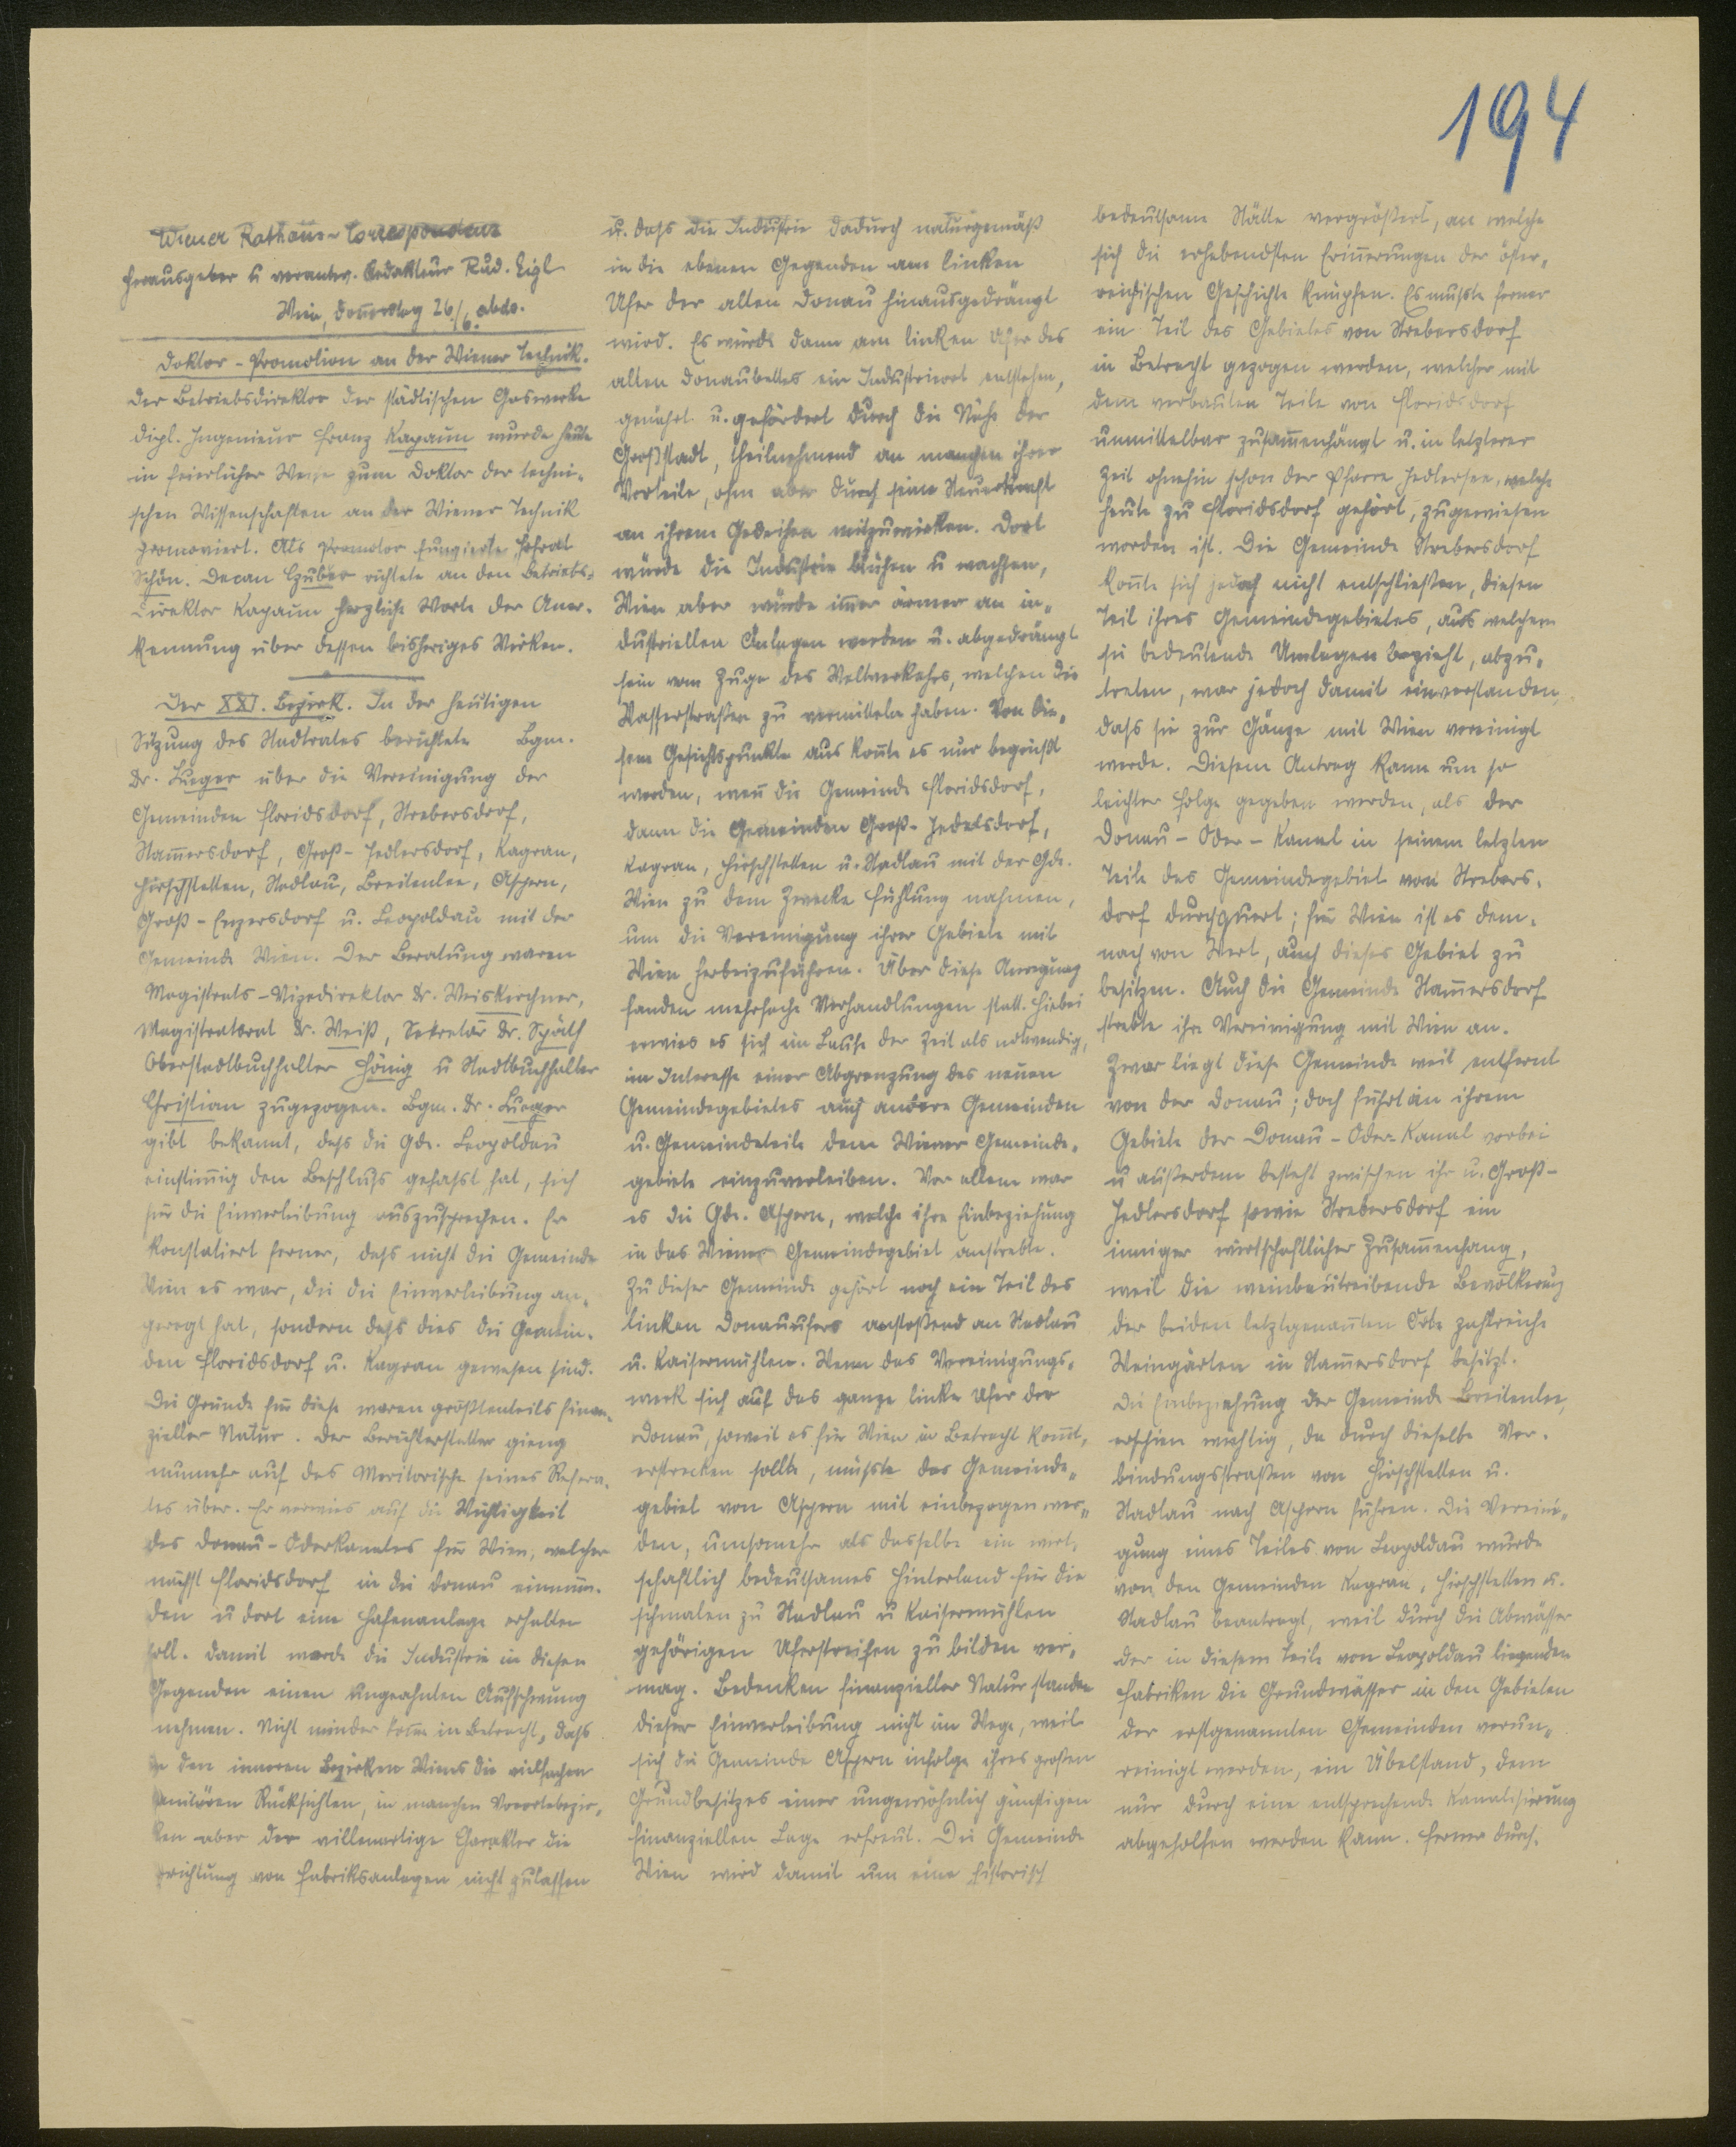 194
Wiener Rathaus-Correspondenz
Herausgeber u verantw. Redakteur Rud. Eigl
Wien, Donnerstag 26/6. abds.
Doktor-Promotion an der Wiener Technik.
Der Betriebsdirektor der städtischen Gaswerke
dipl. Ingenieur Franz Kapaun wurde heute
in feierlicher Weise zum Doktor der techni-
schen Wissenschaften an der Wiener Technik
promoviert. Als Promotor fungierte Hofrat
Schön. Decan Czuber richtete an den Betriebs-
direktor Kapaun herzliche Worte der Aner-
kennung über dessen bisheriges Wirken.
Der XXI. Bezirk. In der heutigen
Sitzung des Stadtrates berichtete Bgm.
Dr. Lueger über die Vereinigung der
Gemeinden Floridsdorf, Strebersdorf,
Stam̄ersdorf, Groß-Jedlersdorf, Kagran,
Hirschstetten, Stadlau, Breitenlee, Aspern,
Groß-Enzersdorf u. Leopoldau mit der
Gemeinde Wien. Der Beratung waren
Magistrats-Vizedirektor Dr. Weiskirchner,
Magistratsrat Dr. Weiß, Sekretär Dr. Späth
Oberstadtbuchhalter Hönig u Stadtbuchhalter
Christian zugezogen. Bgm. Dr. Lueger
gibt bekannt, dass die Gde. Leopoldau
einstim̄ig den Beschluss gefasst hat, sich
für die Einverleibung auszusprechen. Er
konstatiert ferner, dass nicht die Gemeinde
Wien es war, die die Einverleibung an-
geregt hat, sondern dass dies die Gemein-
den Floridsdorf u. Kagran gewesen sind.
Die Gründe für diese waren größtenteils finan-
zieller Natur. Der Berichterstatter gieng
nunmehr auf das Meritorische seines Refera-
tes über. Er verwies auf die Wichtigkeit
des Donau-Oderkanales für Wien, welcher
nächst Floridsdorf in die Donau einmün-
den u dort eine Hafenanlage erhalten
soll. Damit werde die Industrie in diesen
Gegenden einen ungeahnten Aufschwung
nehmen. Nicht minder kom̄e in Betracht, dass
in den inneren Bezirken Wiens die vielfachen
sanitären Rücksichten, in manchen Vorortebezir-
ken aber der villenartige Charakter die
Errichtung von Fabriksanlagen nicht zulassen
u. dass die Industrie dadurch naturgemäß
in die ebenen Gegenden am linken
Ufer der alten Donau hinausgedrängt
wird. Es würde dann am linken Ufer des
alten Donaubettes ein Industrieort entstehen,
genährt u. gefördert durch die Nähe der
Großstadt, theilnehmend an manchen ihrer
Vorteile, ohne aber durch seine Steuerkraft
an ihrem Gedeihen mitzuwirken. Dort
würde die Industrie blühen u wachsen,
Wien aber würde im̄er ärmer an in-
dustriellen Anlagen werden u. abgedrängt
sein vom Zuge des Weltverkehrs, welchen die
Wasserstraßen zu vermitteln haben. Von die-
sem Gesichtspunkte aus kon̄te es nur begrüßt
werden, wen̄ die Gemeinde Floridsdorf,
dann die Gemeinden Groß-Jedlersdorf,
Kagran, Hirschstetten u. Stadlau mit der Gde.
Wien zu dem Zwecke Fühlung nahmen,
um die Vereinigung ihrer Gebiete mit
Wien herbeizuführen. Über diese Anregung
fanden mehrfache Verhandlungen statt. Hiebei
erwies es sich im Laufe der Zeit als notwendig,
im Interesse einer Abgrenzung des neuen
Gemeindegebietes auch andere Gemeinden
u. Gemeindeteile dem Wiener Gemeinde-
gebiete einzuverleiben. Vor allem war
es die Gde. Aspern, welche ihre Einbeziehung
in das Wiener Gemeindegebiet anstrebte.
Zu dieser Gemeinde gehört noch ein Teil des
linken Donauufers anstoßend an Stadlau
u. Kaisermühlen. Wenn das Vereinigungs-
werk sich auf das ganze linke Ufer der
Donau, soweit es für Wien in Betracht kom̄t,
erstrecken sollte, müsste das Gemeinde-
gebiet von Aspern mit einbezogen wer-
den, umsomehr als dasselbe ein wirt-
schaftlich bedeutsames Hinterland für die
schmalen zu Stadlau u Kaisermühlen
gehörigen Uferstreifen zu bilden ver-
mag. Bedenken finanzieller Natur standen
dieser Einverleibung nicht im Wege, weil
sich die Gemeinde Aspern infolge ihres großen
Grundbesitzes einer ungewöhnlich günstigen
finanziellen Lage erfreut. Die Gemeinde
Wien wird damit um eine historisch
bedeutsame Stätte vergrößert, an welche
sich die erhebendsten Erin̄erungen der öster-
reichischen Geschichte knüpfen. Es musste ferner
ein Teil des Gebietes von Strebersdorf
in Betracht gezogen werden, welcher mit
dem verbauten Teile von Floridsdorf
unmittelbar zusam̄enhängt u. in letzterer
Zeit ohnehin schon der Pfarre Jedlersee, welche
heute zu Floridsdorf gehört, zugewiesen
worden ist. Die Gemeinde Strebersdorf
kon̄te sich jedoch nicht entschließen, diesen
Teil ihres Gemeindegebietes, aus welchem
sie bedeutende Umlagen bezieht, abzu-
treten, war jedoch damit einverstanden,
dass sie zur Gänze mit Wien vereinigt
werde. Diesem Antrag kann um so
leichter Folge gegeben werden, als der
Donau-Oder-Kanal in seinem letzten
Teile das Gemeindegebiet von Strebers-
dorf durchquert; für Wien ist es dem-
nach von Wert, auch dieses Gebiet zu
besitzen. Auch die Gemeinde Stam̄ersdorf
strebte ihre Vereinigung mit Wien an.
Zwar liegt diese Gemeinde weit entfernt
von der Donau; doch führt an ihrem
Gebiete der Donau-Oder-Kanal vorbei
u außerdem besteht zwischen ihr u. Groß-
Jedlersdorf sowie Strebersdorf ein
inniger wirtschaftlicher Zusam̄enhang,
weil die weinbautreibende Bevölkerung
der beiden letztgenan̄ten Orte zahlreiche
Weingärten in Stam̄ersdorf besitzt.
Die Einbeziehung der Gemeinde Breitenlee,
erschien wichtig, da durch dieselbe Ver-
bindungsstraßen von Hirschstetten u.
Stadlau nach Aspern führen. Die Vereini-
gung eines Teiles von Leopoldau wurde
von den Gemeinden Kagran, Hirschstetten u.
Stadlau beantragt, weil durch die Abwässer
der in diesem Teile von Leopoldau liegenden
Fabriken die Grundwässer in den Gebieten
der erstgenannten Gemeinden verun-
reinigt werden, ein Übelstand, dem
nur durch eine entsprechende Kanalisierung
abgeholfen werden kann. Ferner durch-